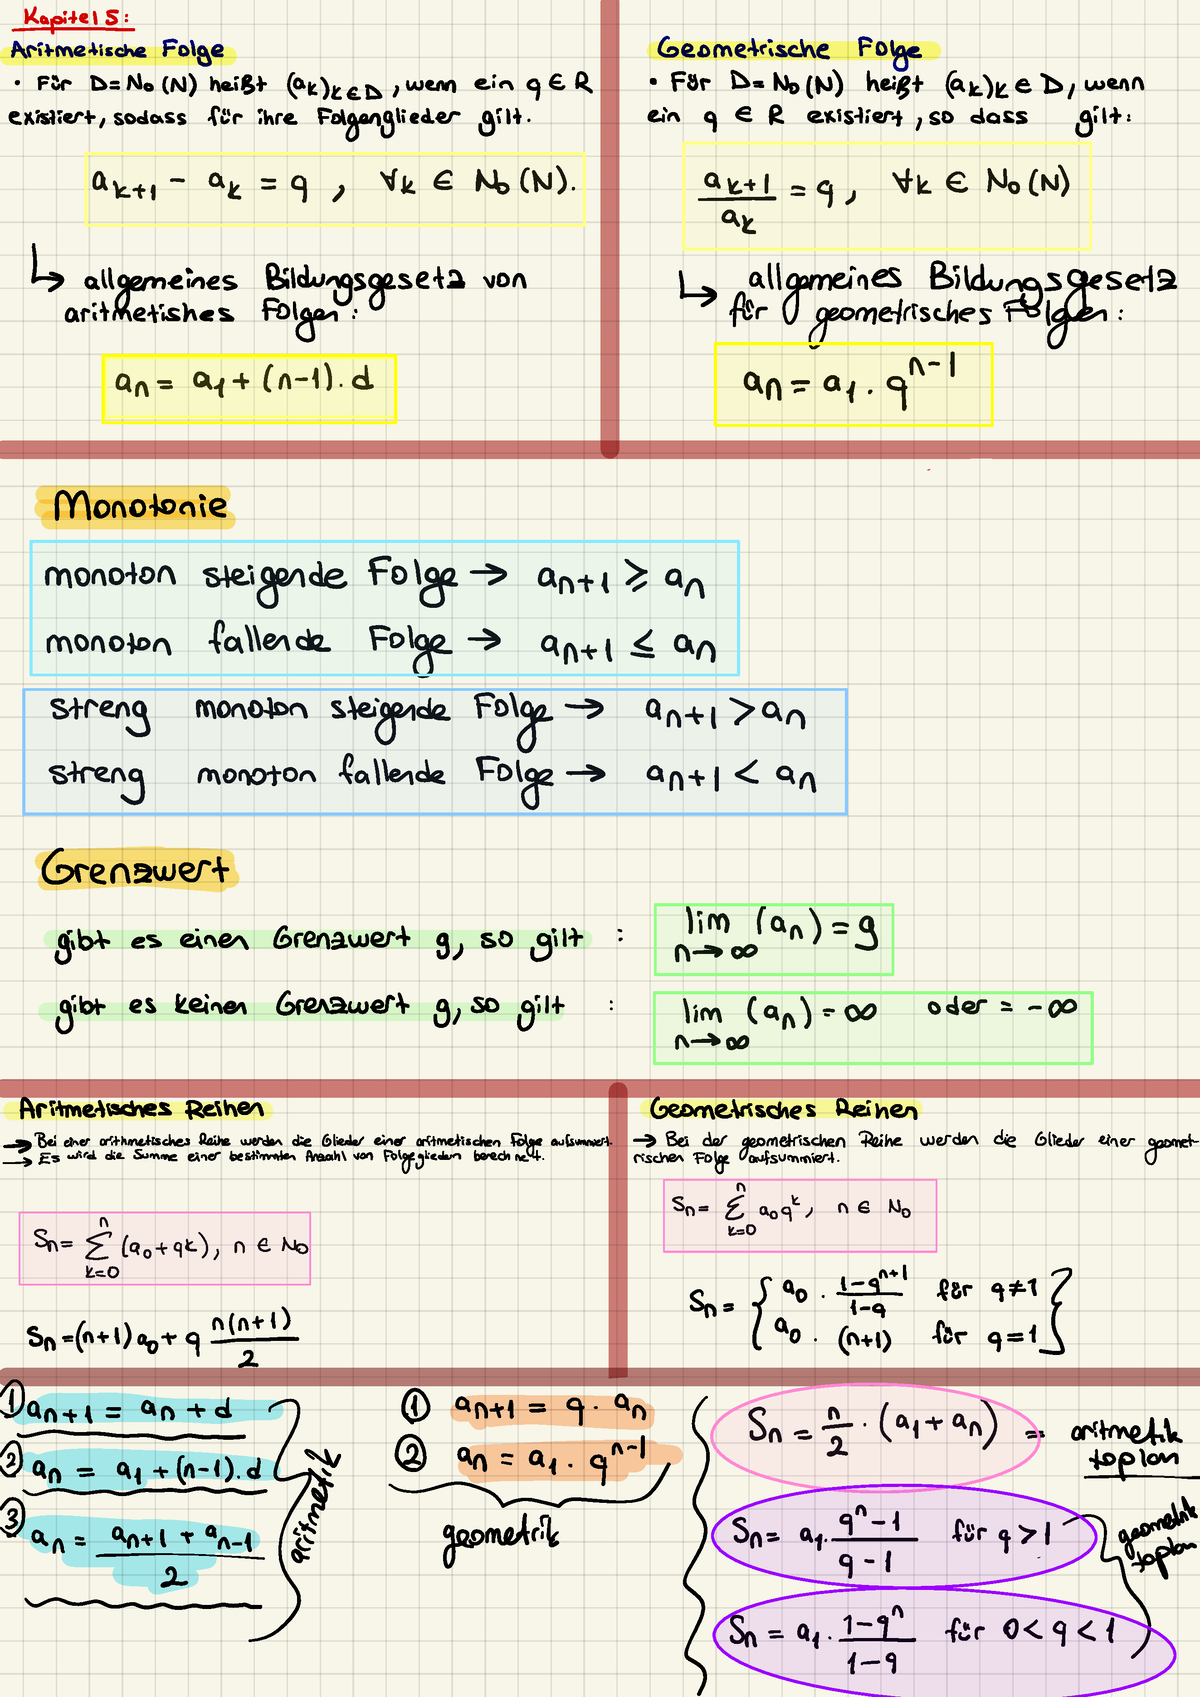 Kapitel 5:
Aritmetische Folge
• Für D=N₀(N) heißt (aₖ)ₖ∈D, wenn ein q ∈ R
existiert, sodass für ihre Folgenglieder gilt.
aₖ₊₁ - aₖ = q , ∀k ∈ N₀(N).
↳ allgemeines Bildungsgesetz von
aritmetishes Folgen:
aₙ = a₁ + (n-1). d
Geometrische Folge
• Für D=N₀(N) heißt (aₖ)ₖ ∈ D, wenn
ein q ∈ R existiert, so dass gilt:
aₖ₊₁/aₖ = q, ∀k ∈ N₀(N)
↳ allgemeines Bildungsgesetz
für geometrisches Folgen:
aₙ = a₁ . qⁿ⁻¹
Monotonie
monoton steigende Folge → aₙ₊₁ ≥ aₙ
monoton fallende Folge → aₙ₊₁ ≤ aₙ
streng monoton steigende Folge → aₙ₊₁ > aₙ
streng monoton fallende Folge → aₙ₊₁ < aₙ
Grenzwert
gibt es einen Grenzwert g, so gilt : lim n→∞ (aₙ) = g
gibt es keinen Grenzwert g, so gilt : lim n→∞ (aₙ) = ∞ oder = -∞
Aritmetisches Reihen
→ Bei einer arithmetisches Reihe werden die Glieder einer aritmetischen Folge aufsummiert.
→ Es wird die Summe einer bestimmten Anzahl von Folgegliedern berechnet.
Sₙ = ∑ₖ₌₀ⁿ (a₀+qk), n ∈ N₀
Sₙ = (n+1) a₀ + q n(n+1)/2
Geometrisches Reihen
→ Bei der geometrischen Reihe werden die Glieder einer geomet-
rischen Folge aufsummiert.
Sₙ = ∑ₖ₌₀ⁿ a₀qᵏ, n ∈ N₀
Sₙ = { a₀ . (1-qⁿ⁺¹)/(1-q) für q≠1
a₀ . (n+1) für q=1 }
① aₙ₊₁ = aₙ + d
② aₙ = a₁ + (n-1). d
③ aₙ = (aₙ₊₁ + aₙ₋₁)/2
aritmetik
① aₙ₊₁ = q . aₙ
② aₙ = a₁ . qⁿ⁻¹
geometrik
Sₙ = n/2 . (a₁ + aₙ) = aritmetik
toplam
Sₙ = a₁. (qⁿ-1)/(q-1) für q > 1
Sₙ = a₁. (1-qⁿ)/(1-q) für 0 < q < 1
geometrik
toplam